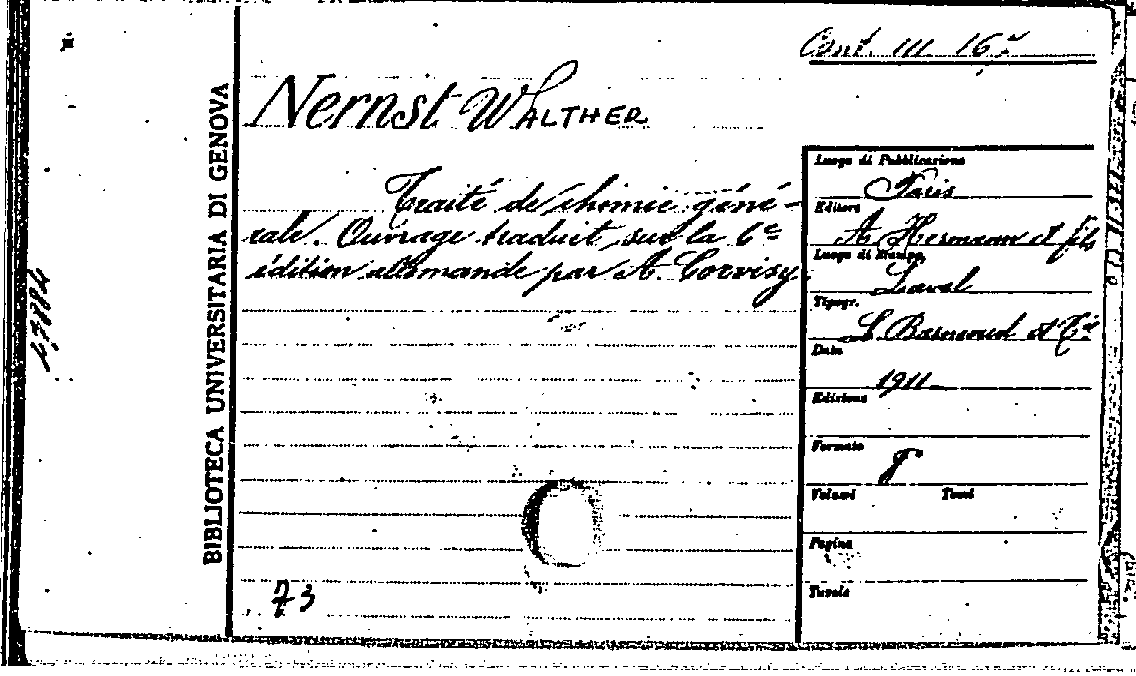 Cont. III 16.
BIBLIOTECA UNIVERSITARIA DI GENOVA
Nernst WALTHER
Traité de chimie géné-
rale. Ouvrage traduit sur la 6e
édition allemande par A. Corvisy
73
Luogo di Pubblicazione
Paris
Editore
A. Hermann et fils
Luogo di Stampa
Laval
Tipogr.
L. Barnéoud et Cie
Data
1911
Edizione
Formato
8°
Volumi Tomi
Pagine
Tavole